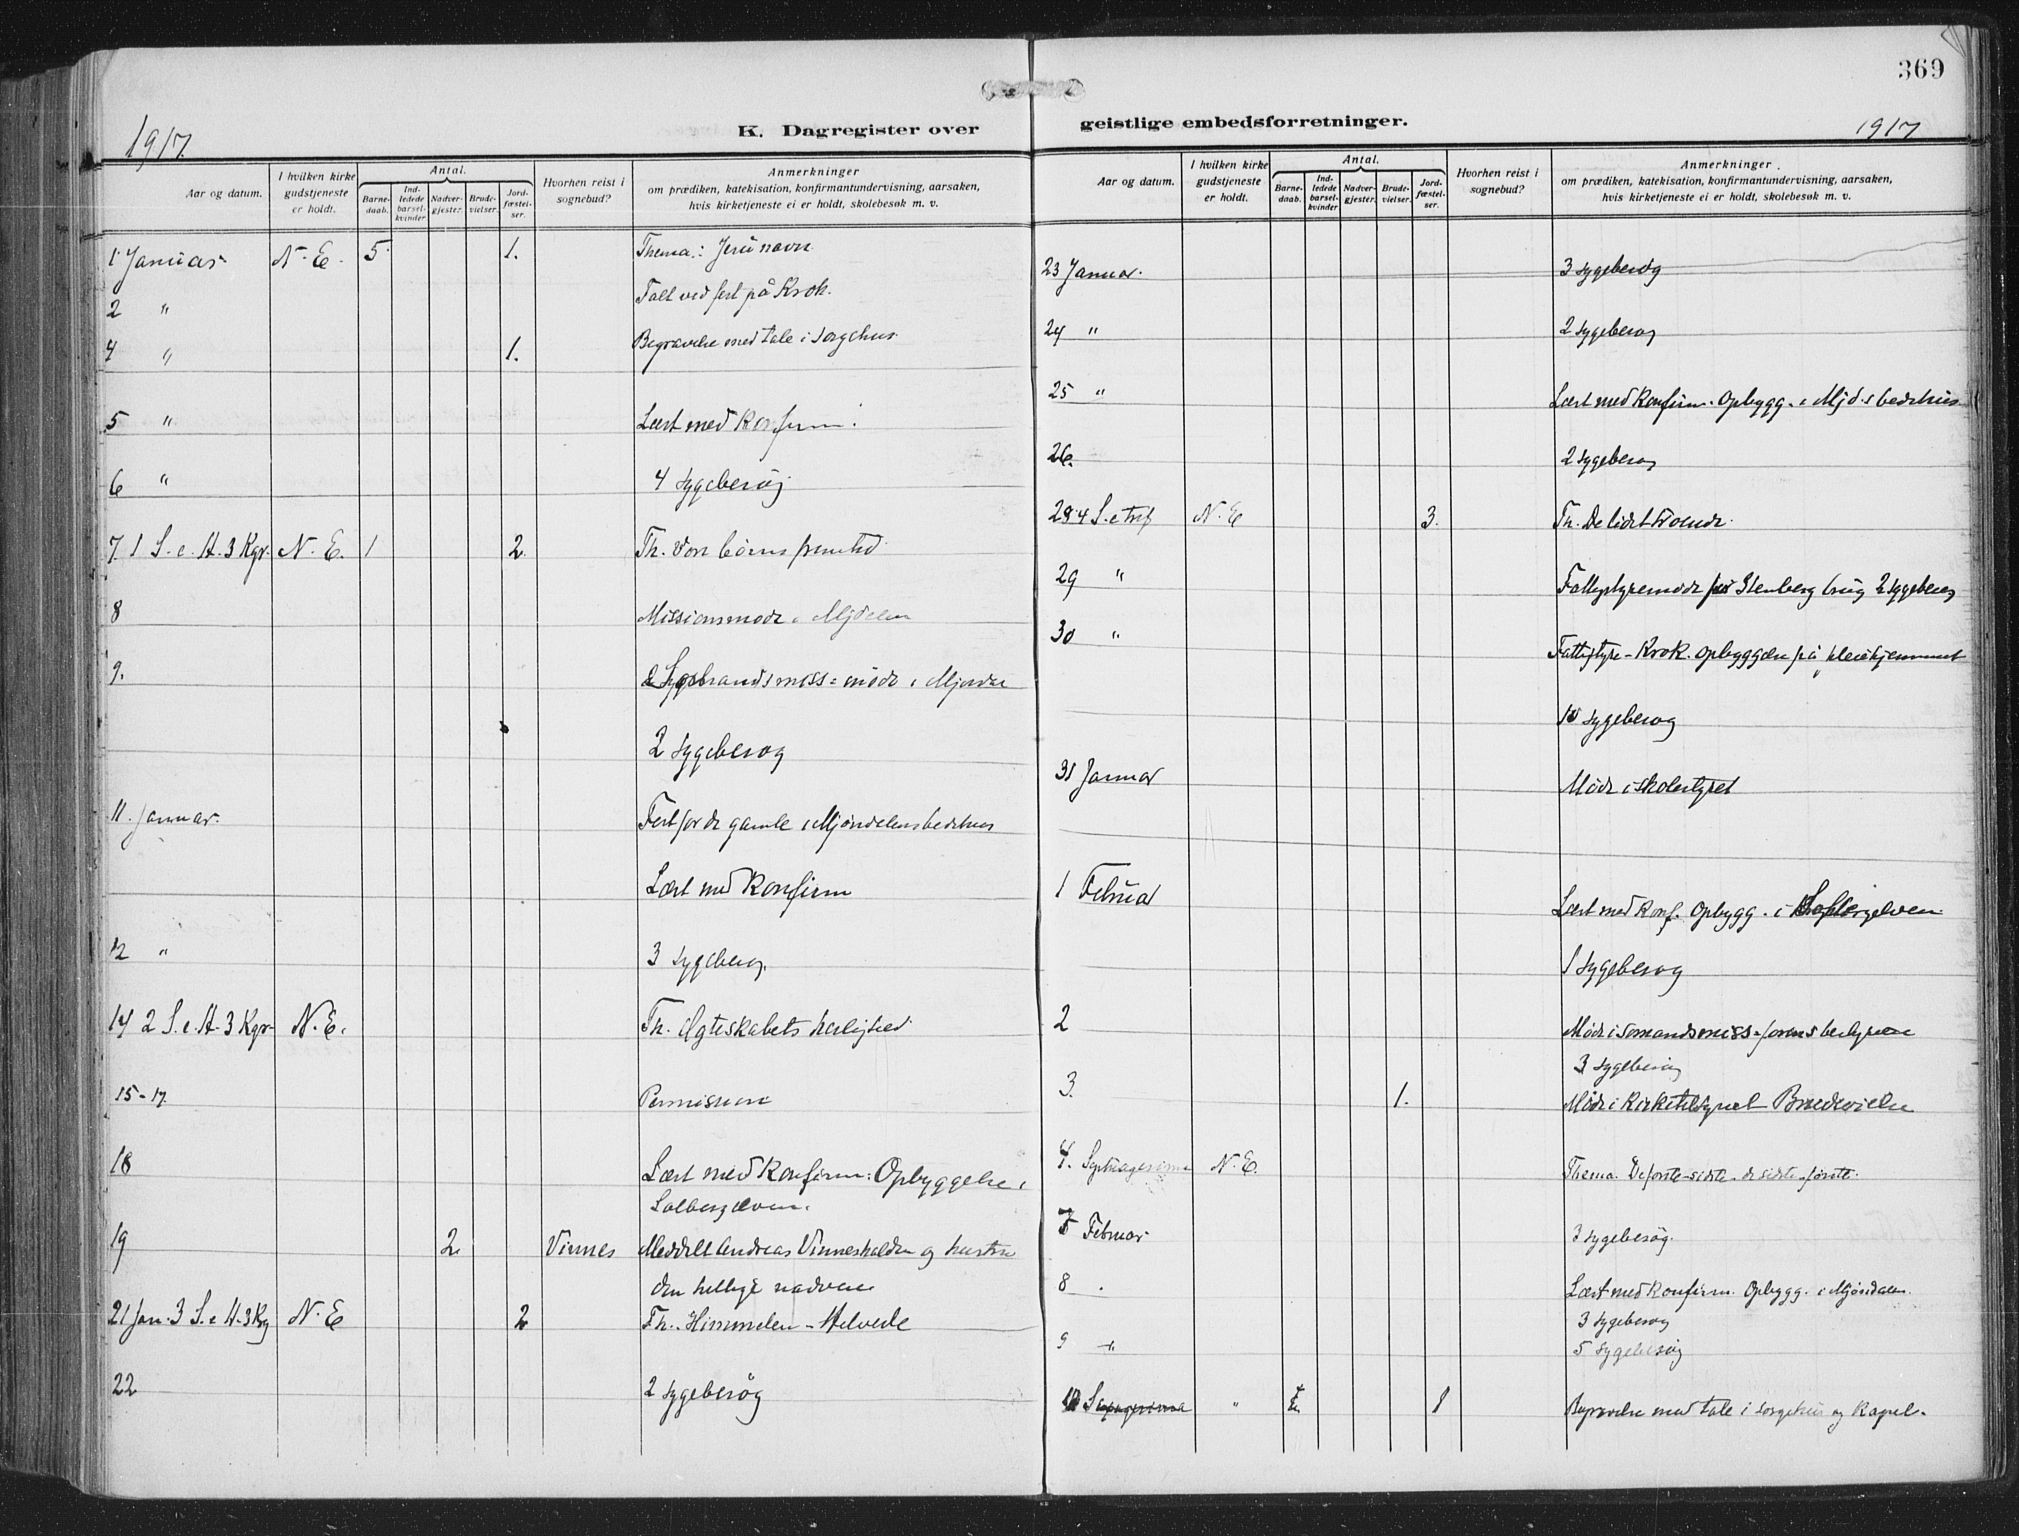 369
1917.
K. Dagregister over
geistlige embedsforretninger.
1917
Aar og datum.
I hvilken kirke gudstjeneste er holdt.
Antal.
Barne-daab.
Ind-ledede barsel-kvinder
Nadver-gjester.
Brude-vielser.
Jord-fæstel-ser.
Hvorhen reist i sognebud?
Anmerkninger
om prædiken, katekisation, konfirmantundervisning, aarsaken,
hvis kirketjeneste ei er holdt, skolebesøk m. v.
1 Januar N. E. 5. 1. Thema: Jesu navn
2 " Talt ved fest på Krok.
4 " 1. Begravelse med tale i sorgehus.
5 " Læst med Konfirm.
6 " 4 sygebesøg
7. 1 S. e. H. 3 Kgr. N. E. 1 2. Th. Vore børns fremtid
8 Missionsmøde i Mjdalen
9. miss=møde i Mjøndal
2 sygebesøg
11. Januar. Fest for de gamle i Mjøndalens bedehus
Læst med Konfirm
12 " 3 sygebesøg.
14 2 S. e. H. 3 Kgr. N. E. Th. Ægteskabets herlighed
15-17. Permission
18 Læst med Konfirm. Opbyggelse i
Solbergelven.
19 2 Vinnes Meddelt Andreas Vinneshalden og hustru
den hellige nadvere
21 Jan. 3 S. e H. 3 Kg N. E 2 Th. Himmelen - Helvede
22 2 sygebesøg
Aar og datum.
I hvilken kirke gudstjeneste er holdt.
Antal.
Barne-daab.
Ind-ledede barsel-kvinder
Nadver-gjester.
Brude-vielser.
Jord-fæstel-ser.
Hvorhen reist i sognebud?
Anmerkninger
om prædiken, katekisation, konfirmantundervisning, aarsaken,
hvis kirketjeneste ei er holdt, skolebesøk m. v.
23 Januar. 3 sygebesøg
24 " 2 sygebesøg
25 " Læst med Konfirm. Opbygg. i Mjd.s bedehus
26. 2 sygebesøg
28 4 S. e N. E 3. Th. De lidet troende.
29 " Fattigstyremøde Stenberg brug 2 sygebesøg
30 " Fattigstyre - Krok. Opbyggelse på pleiehjemmet
10 sygebesøg
31 Januar Møde i skolestyret
1 Februar Læst med Konf. Opbygg. i Solbergelven
1 sygebesøg
2 Møde i sømandsmiss=forens bestyrelse
3 sygebesøg
3. 1. Møde i Kirketilsynet Brudevielse
4. Septuagesima N. E. Thema. De første - sidste - de sidste - første.
7 Februar 3 sygebesøg.
8 . Læst med Konfirm. Opbygg. i Mjøndalen.
3 sygebesøg
9 " 5 sygebesøg
10 " 1 Begravelse med tale i sorgehus og Kapel.